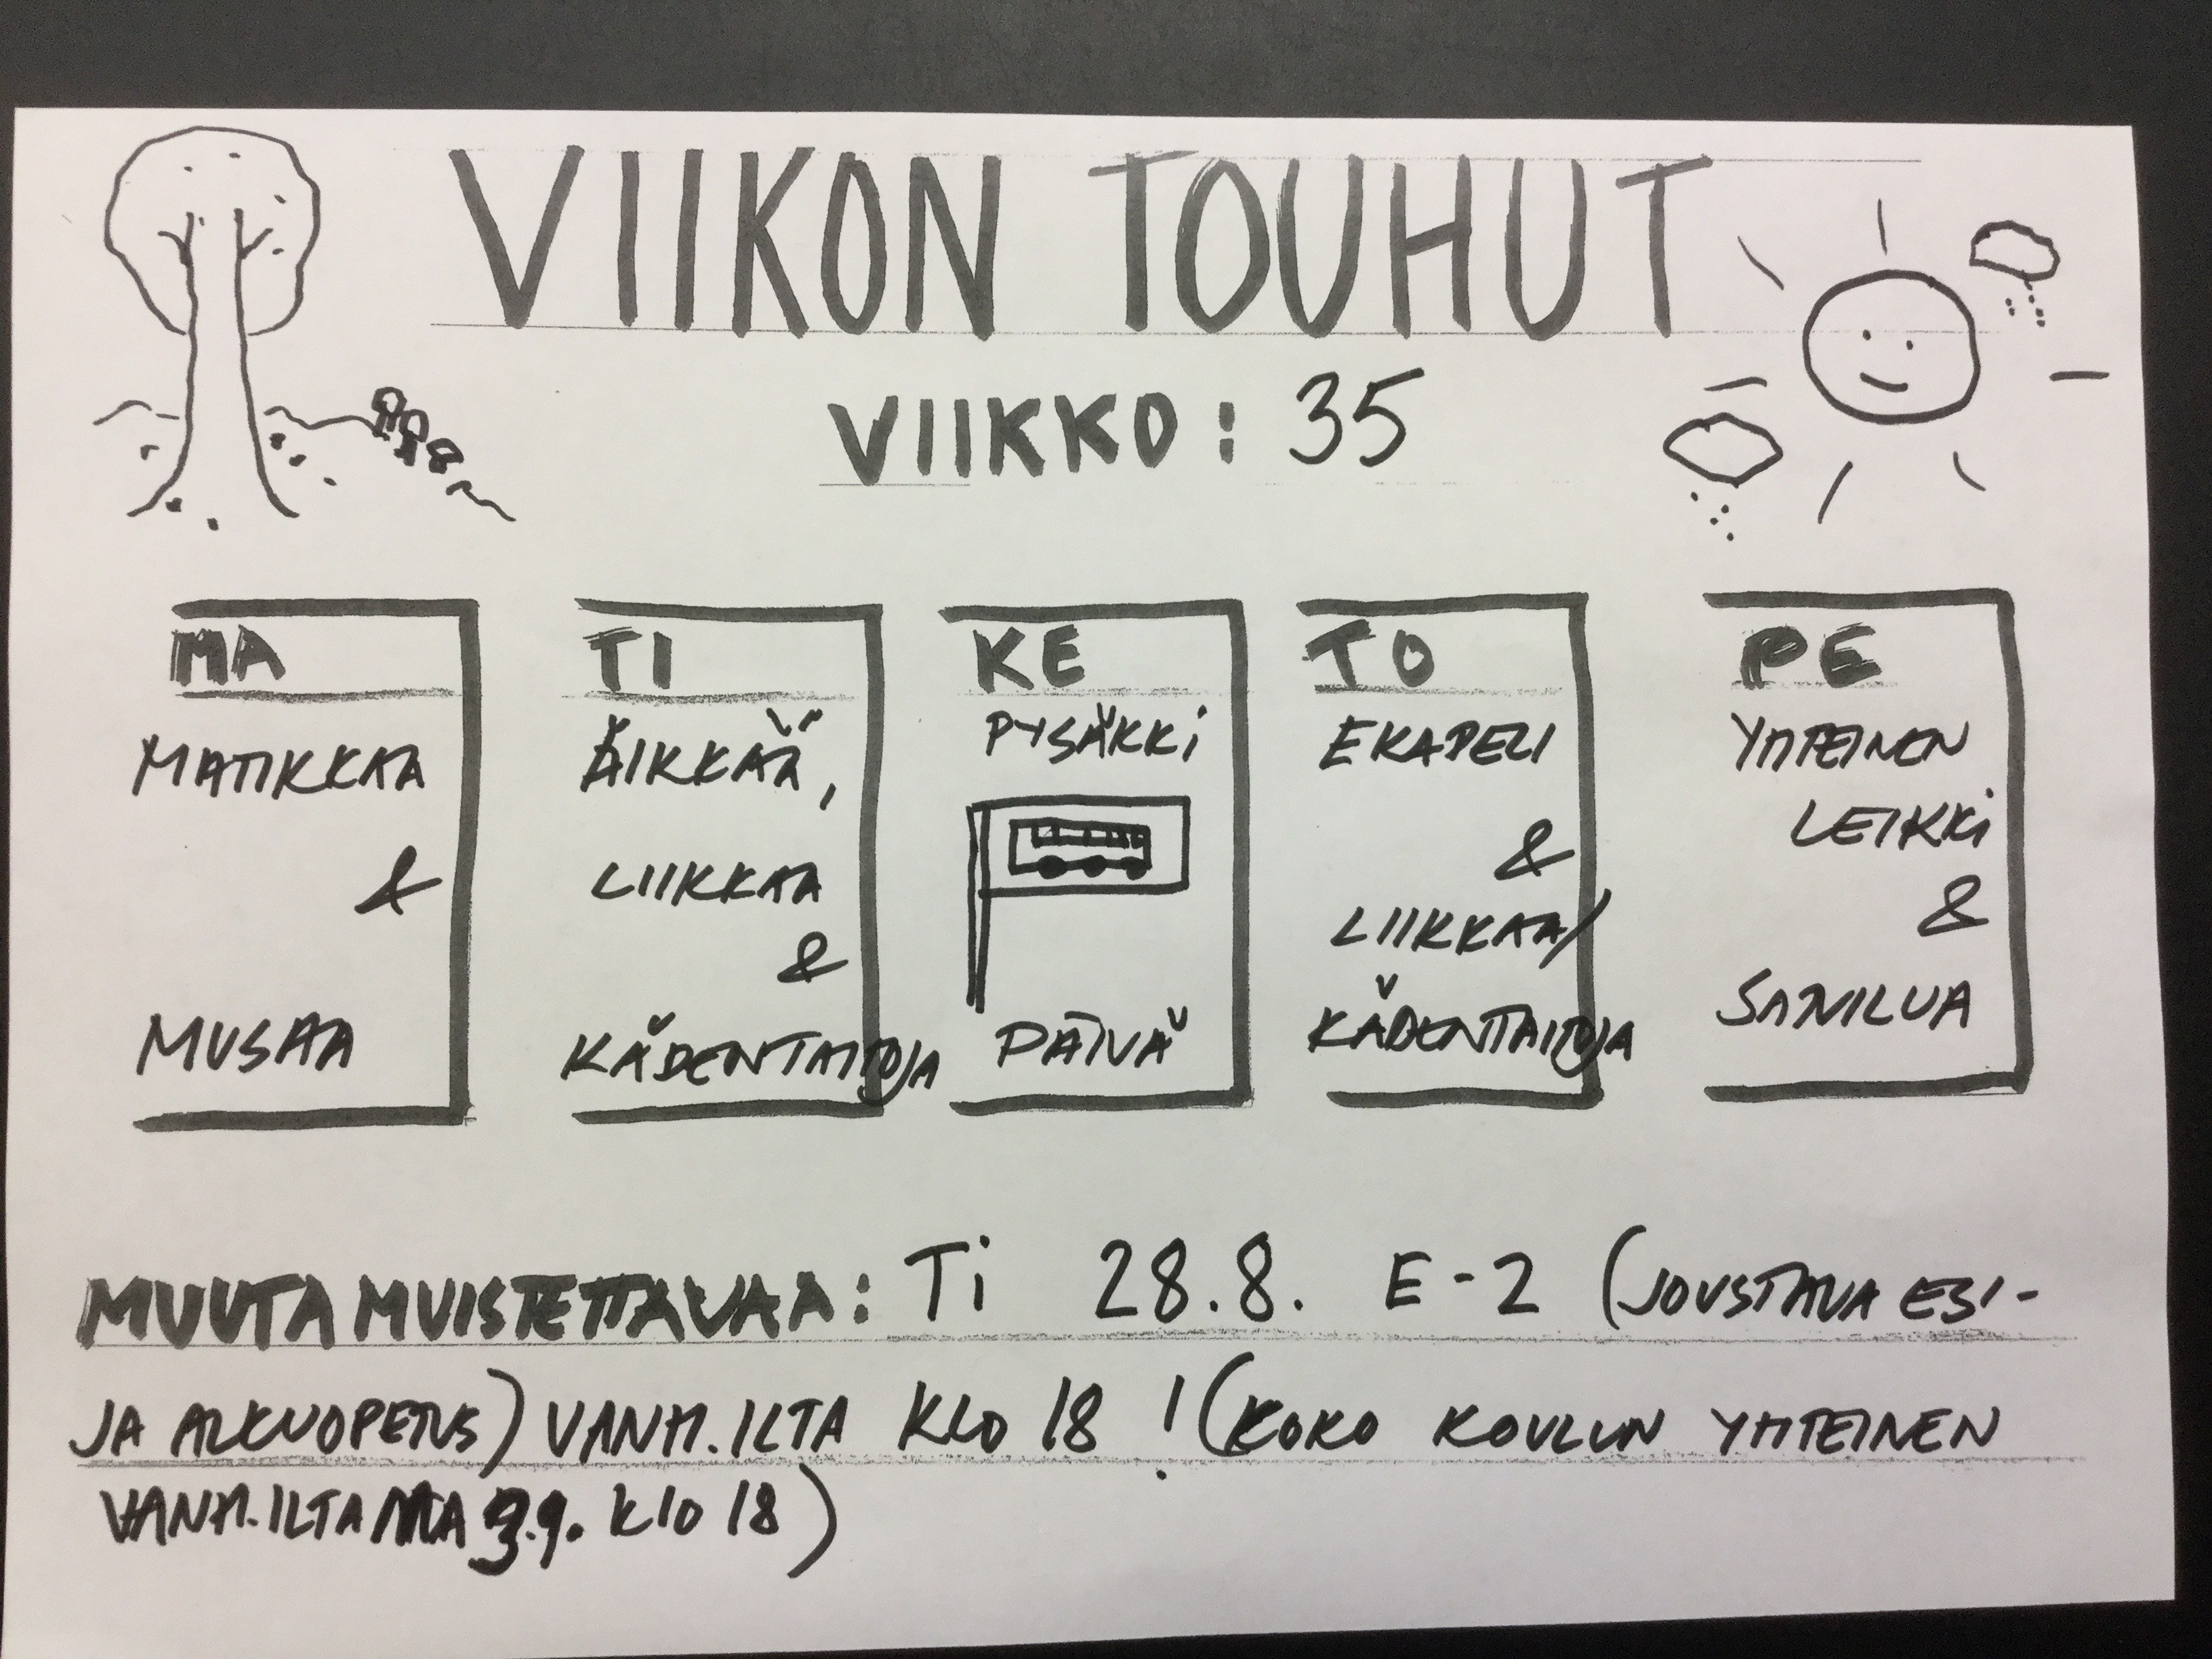 VIIKON TOUHUT
VIIKKO: 35
MA
MATIKKAA
&
MUSAA
TI
ÄIKKÄÄ,
LIIKKAA
&
KÄDENTAITOJA
KE
PYSÄKKI
PÄIVÄ
TO
EKAPELI
&
LIIKKAA/
KÄDENTAITOJA
PE
YHTEINEN
LEIKKI
&
SANILUA
MUUTA MUISTETTAVAA: Ti 28.8. E-2 (JOUSTAVA ESI-
JA ALKUOPETUS) VANH.ILTA KLO 18 ! (KOKO KOULUN YHTEINEN
VANH.ILTA MA 3.9. KLO 18)